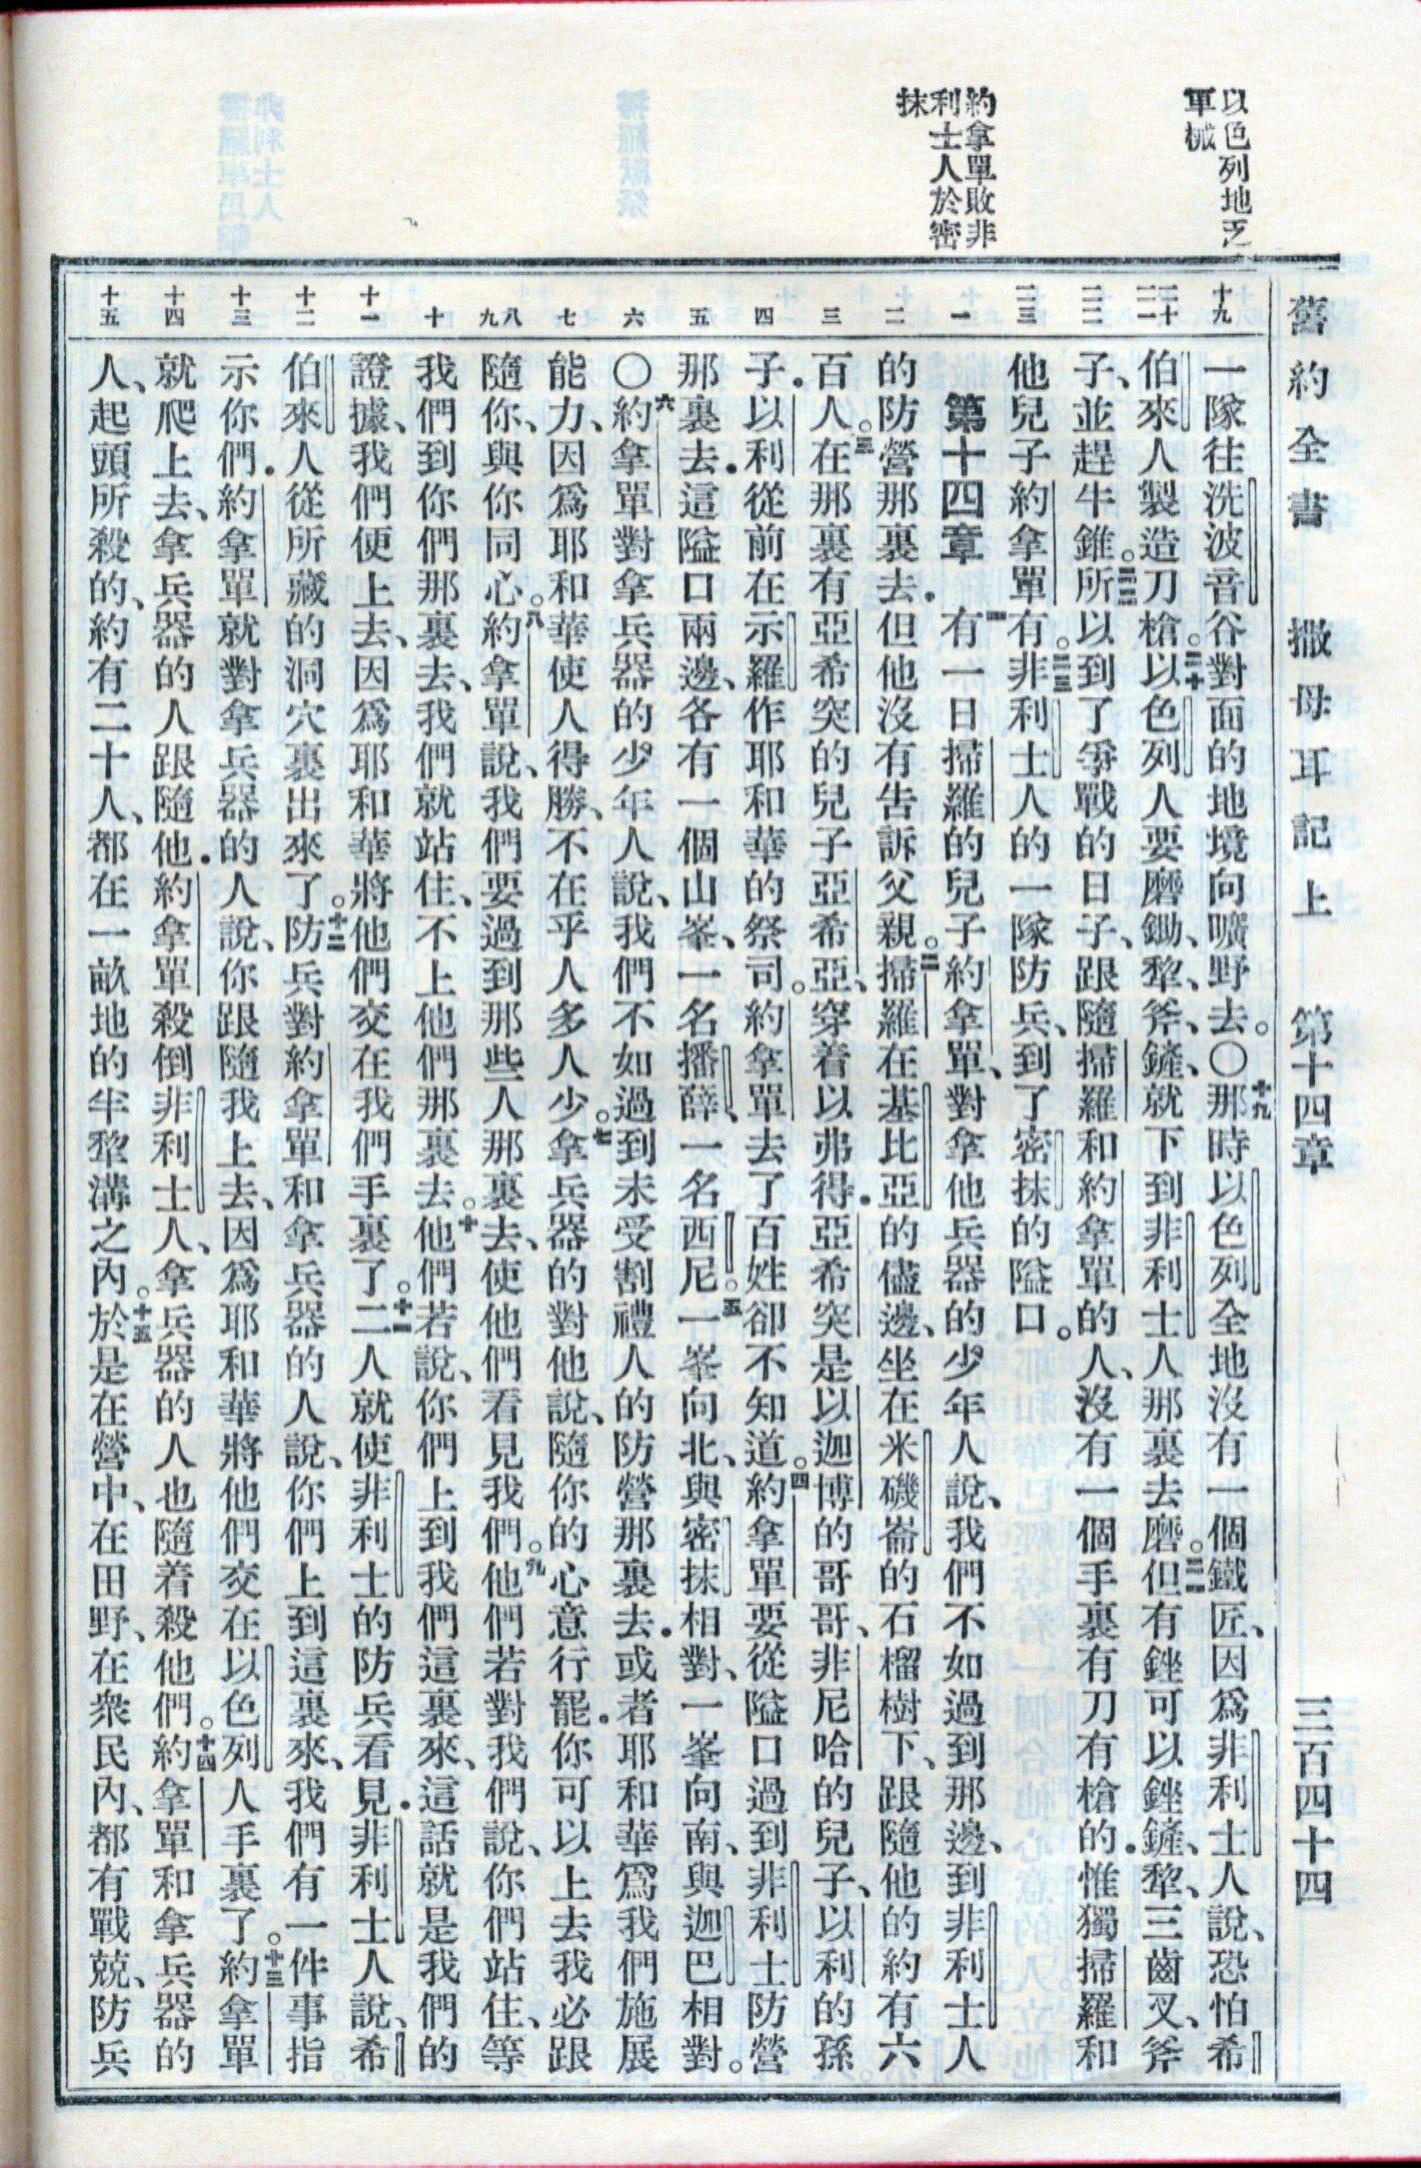 舊約全書 撒母耳記上 第十四章 三百四十四
以色列地乏
軍械
約拿單敗非
利士人於密
抹
十九
二十 二一
二二
二三
一
二
三
四
五
六
七
八 九
十
十一
十二
十三
十四
十五
一隊往洗波音谷對面的地境向曠野去。〇十九那時以色列全地沒有一個鐵匠、因爲非利士人說、恐怕希
伯來人製造刀槍。二十以色列人要磨鋤、犂、斧、鏟、就下到非利士人那裏去磨。二一但有銼可以銼鏟、犂、三齒叉、斧
子、並趕牛錐。二二所以到了爭戰的日子、跟隨掃羅和約拿單的人、沒有一個手裏有刀有槍的．惟獨掃羅和
他兒子約拿單有。二三非利士人的一隊防兵、到了密抹的隘口。
第十四章 一有一日掃羅的兒子約拿單、對拿他兵器的少年人說、我們不如過到那邊、到非利士人
的防營那裏去．但他沒有告訴父親。二掃羅在基比亞的儘邊、坐在米磯崙的石榴樹下、跟隨他的約有六
百人。三在那裏有亞希突的兒子亞希亞、穿着以弗得．亞希突是以迦博的哥哥、非尼哈的兒子、以利的孫
子．以利從前在示羅作耶和華的祭司。約拿單去了百姓卻不知道。四約拿單要從隘口過到非利士防營
那裏去．這隘口兩邊、各有一個山峯、一名播薛、一名西尼。五一峯向北、與密抹相對、一峯向南、與迦巴相對。
〇六約拿單對拿兵器的少年人說、我們不如過到未受割禮人的防營那裏去．或者耶和華爲我們施展
能力、因爲耶和華使人得勝、不在乎人多人少。七拿兵器的對他說、隨你的心意行罷．你可以上去我必跟
隨你、與你同心。八約拿單說、我們要過到那些人那裏去、使他們看見我們。九他們若對我們說、你們站住、等
我們到你們那裏去、我們就站住、不上他們那裏去。十他們若說、你們上到我們這裏來、這話就是我們的
證據、我們便上去、因爲耶和華將他們交在我們手裏了。十一二人就使非利士的防兵看見．非利士人說、希
伯來人從所藏的洞穴裏出來了。十二防兵對約拿單和拿兵器的人說、你們上到這裏來、我們有一件事指
示你們．約拿單就對拿兵器的人說、你跟隨我上去、因爲耶和華將他們交在以色列人手裏了。十三約拿單
就爬上去、拿兵器的人跟隨他．約拿單殺倒非利士人、拿兵器的人也隨着殺他們。十四約拿單和拿兵器的
人、起頭所殺的、約有二十人、都在一畝地的半犂溝之內。十五於是在營中、在田野、在衆民內、都有戰兢、防兵